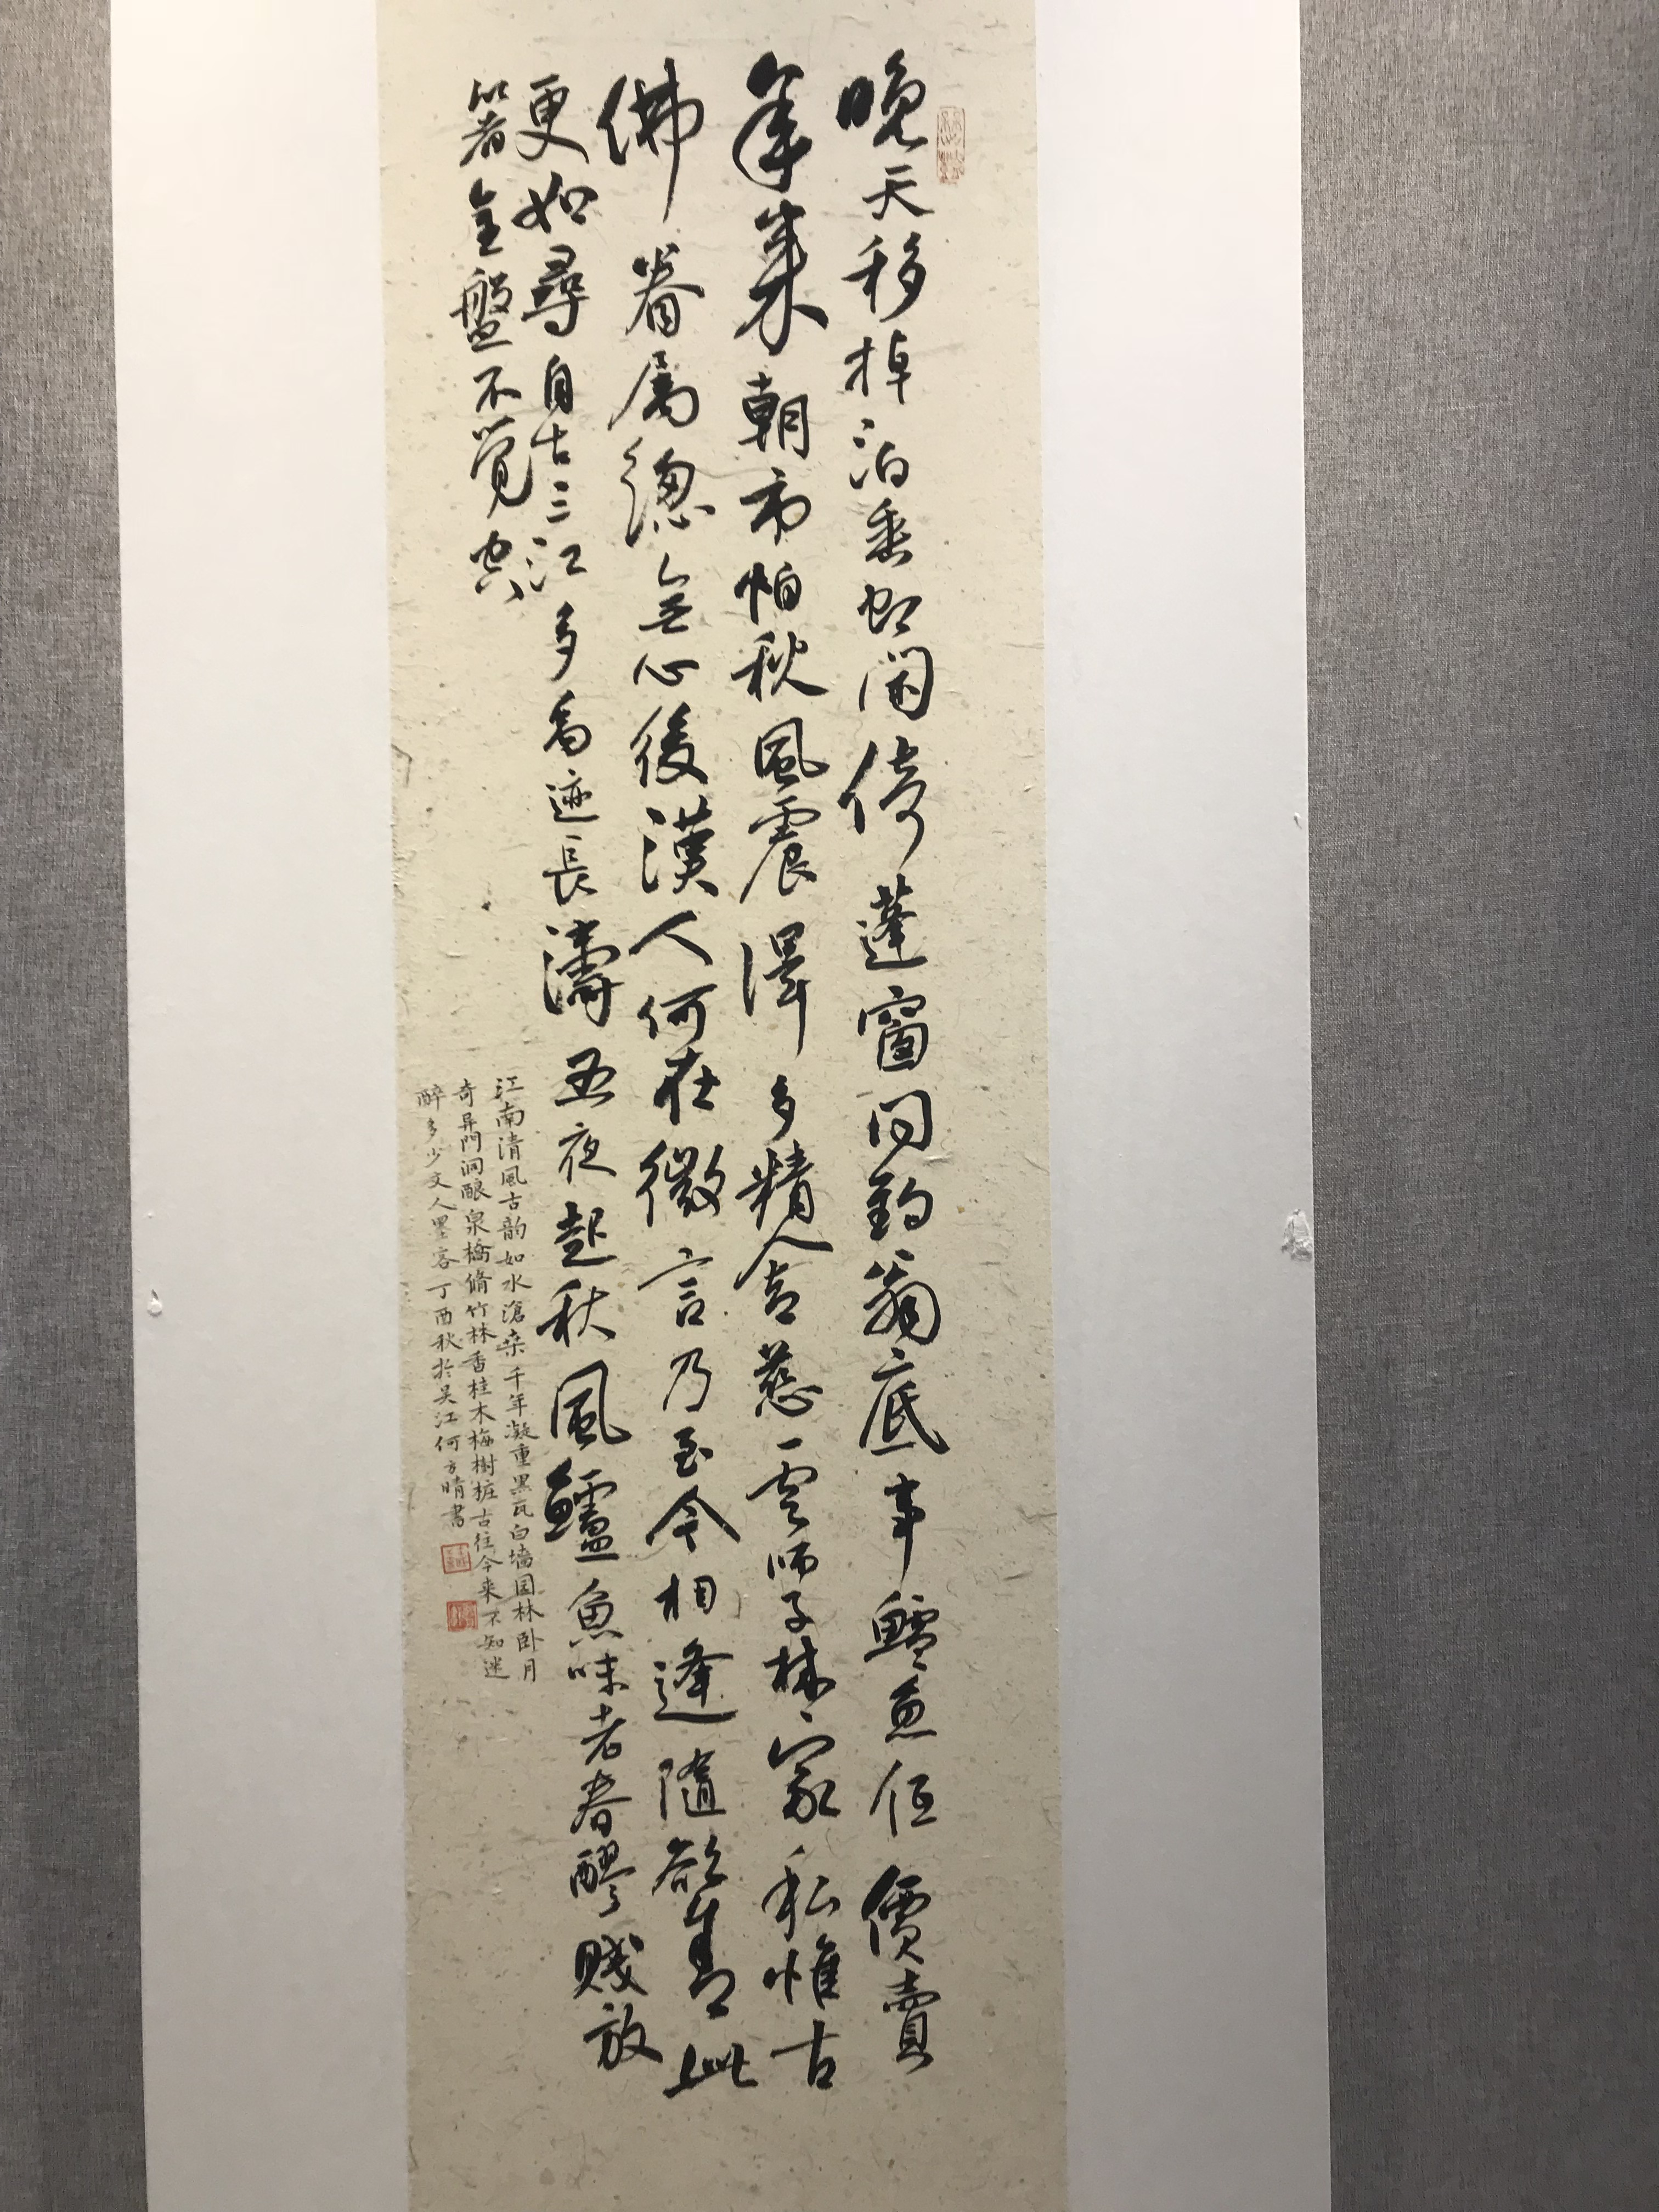 晚天移棹泊垂虹閑倚蓬窗问釣翁底事鱸魚低價賣
年来朝市怕秋風震澤多精舍慈雲師子林家私惟古
佛眷属總無心後漢人何在微言乃至今相逢隨欲去此
更如尋自古三江多禹迹長濤五夜起秋風鱸魚味老春醪賤放
箸金盤不覚空
江南清風古韵如水滄桑千年凝重黑瓦白墙园林卧月
奇异門洞酿泉橋脩竹林香桂木梅樹桩古往今来不知迷
醉多少文人墨客丁酉秋於吴江何方晴書